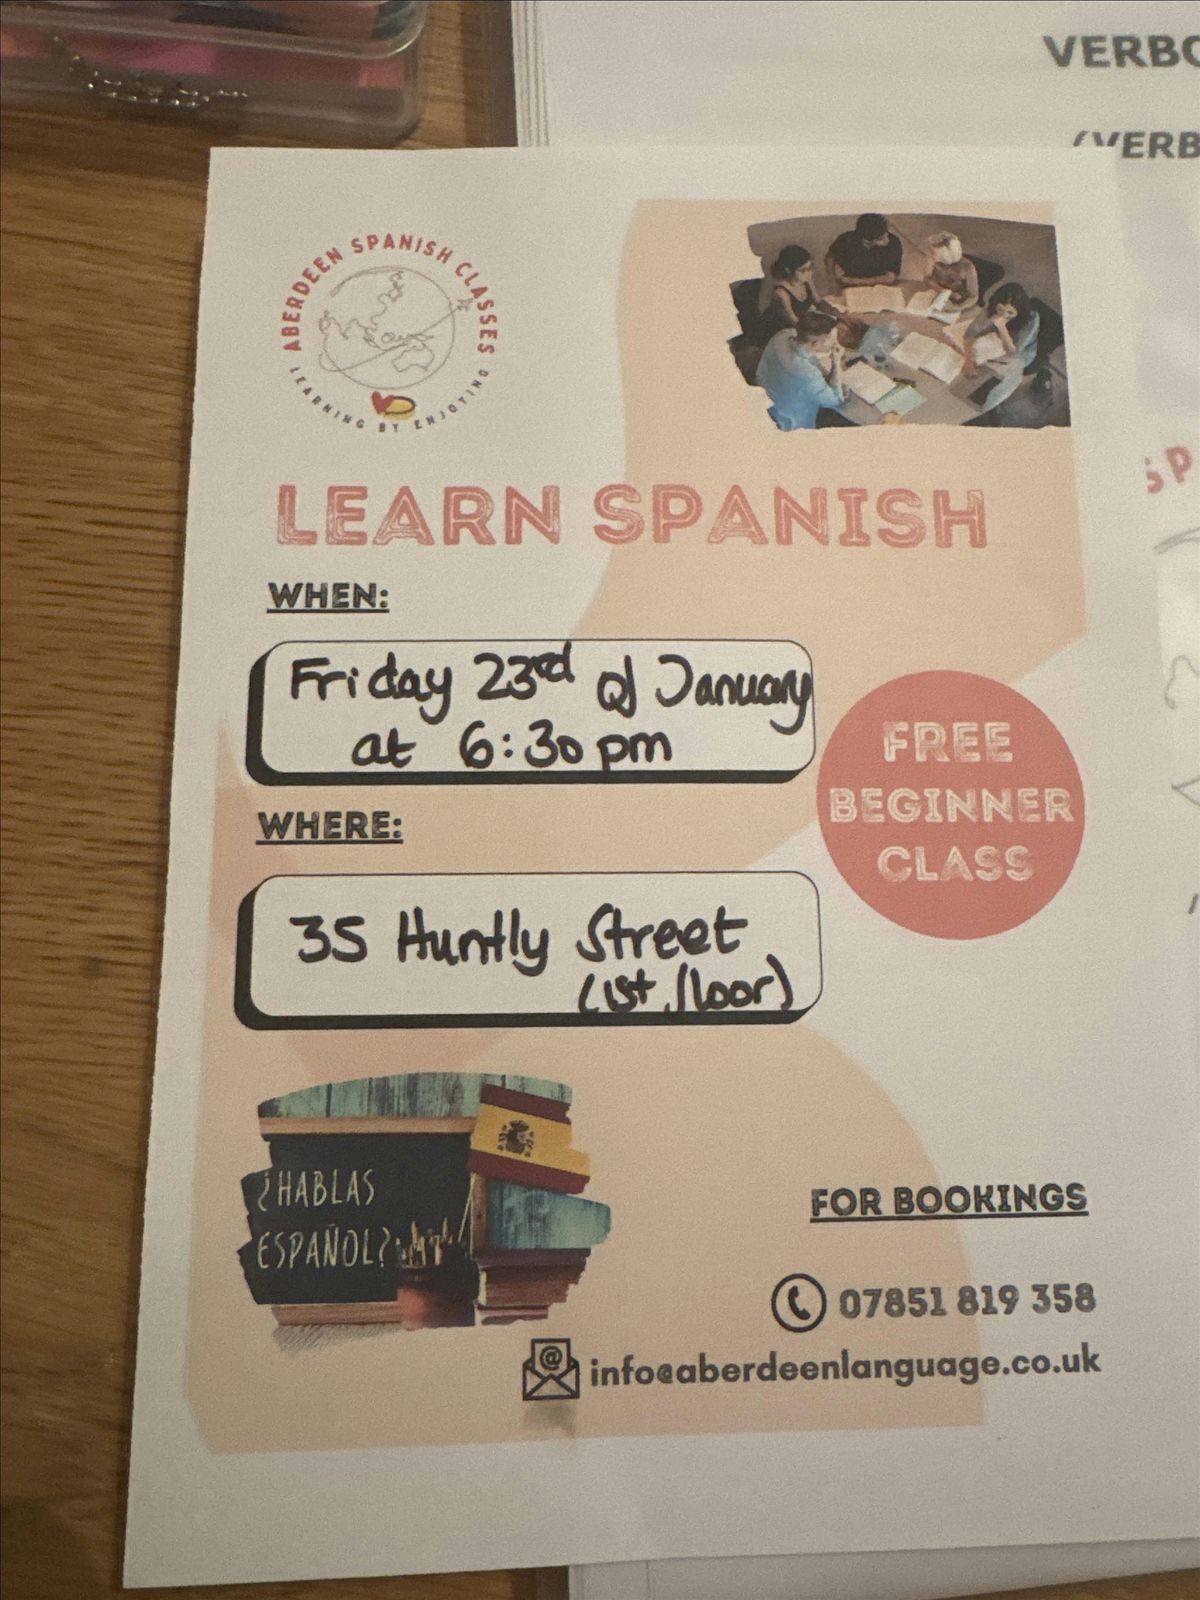 VERBO
(VERB
ABERDEEN SPANISH CLASSES
LEARNING BY ENJOYING
LEARN SPANISH
WHEN:
Friday 23rd of January
at 6:30 pm
FREE
BEGINNER
CLASS
WHERE:
35 Huntly Street
(1st floor)
¿HABLAS
ESPAÑOL?
FOR BOOKINGS
07851 819 358
info@aberdeenlanguage.co.uk
SP